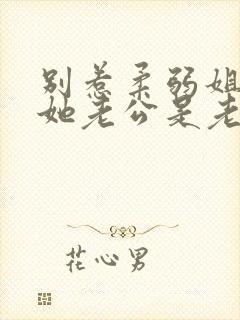 别惹柔弱姐
她老公是老
花心男